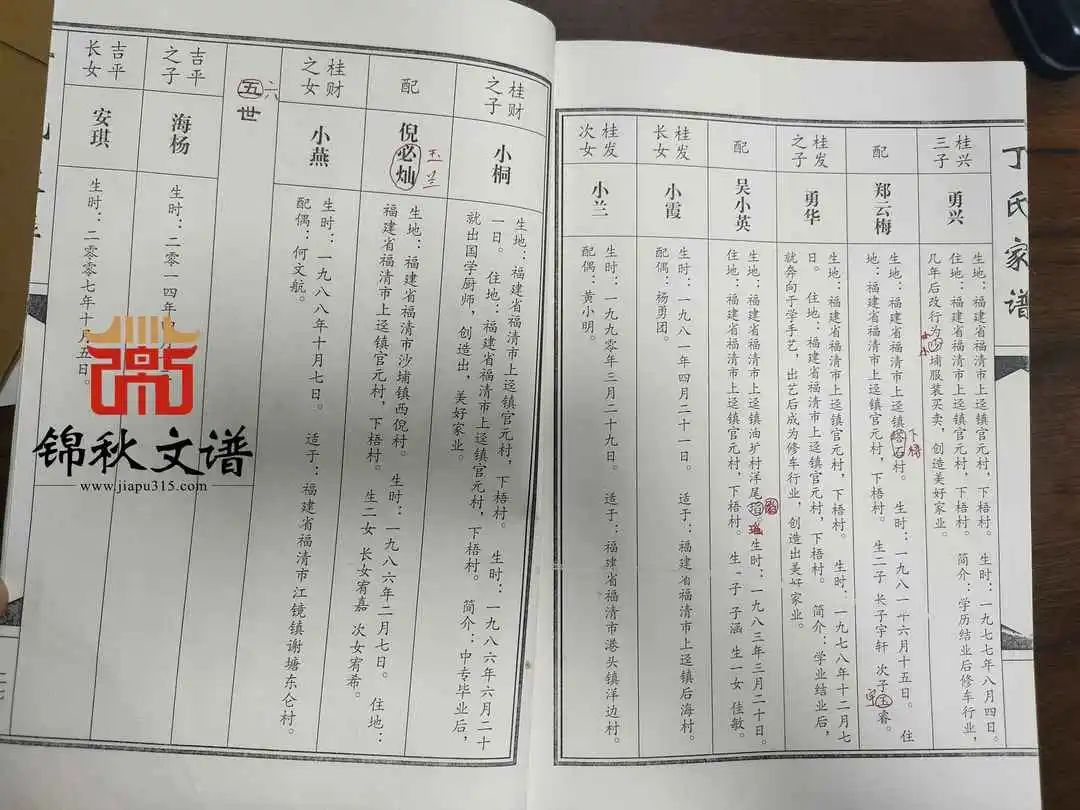 丁氏家谱
桂兴三子
勇兴
生地：福建省福清市上迳镇官元村，下梧村。 生时：一九七七年八月四日。
住地：福建省福清市上迳镇官元村，下梧村。 简介：学历结业后修车行业，
几年后改行为四埔服装买卖，创造美好家业。
配
郑云梅
生地：福建省福清市上迳镇塔石村。 生时：一九八一年六月十五日。 住
下
地：福建省福清市上迳镇官元村，下梧村。 生二子 长子宇轩 次子玉睿。
宇
桂发之子
勇华
生地：福建省福清市上迳镇官元村，下梧村。 生时：一九七八年十二月七
日。 住地：福建省福清市上迳镇官元村，下梧村。 简介：学业结业后，
就奔向于学手艺，出艺后成为修车行业，创造出美好家业。
配
吴小英
生地：福建省福清市上迳镇油圹村洋尾 生时：一九八三年三月二十日。
住地：福建省福清市上迳镇官元村，下梧村。 生一子 子涵 生一女 佳敏。
桂发长女
小霞
生时：一九八一年四月二十一日。 适于：福建省福清市上迳镇后海村。
配偶：杨勇团。
桂发次女
小兰
生时：一九九零年三月二十九日。 适于：福建省福清市港头镇洋边村。
配偶：黄小明。
桂财之子
小桐
生地：福建省福清市上迳镇官元村，下梧村。 生时：一九八六年六月二十
一日。 住地：福建省福清市上迳镇官元村，下梧村。 简介：中专毕业后，
就出国学厨师，创造出，美好家业。
配
倪必灿
玉兰
福建省福清市沙埔镇西倪村。 生时：一九八六年二月七日。 住地：
福建省福清市上迳镇官元村，下梧村。 生二女 长女宥嘉 次女宥希。
桂财之女
小燕
生时：一九八八年十月七日。 适于：福建省福清市江镜镇谢塘东仑村。
配偶：何文航。
五世
六
吉平之子
海杨
生时：二零一四年
吉平长女
安琪
生时：二零零七年十月五日。
锦秋文谱
www.jiapu315.com